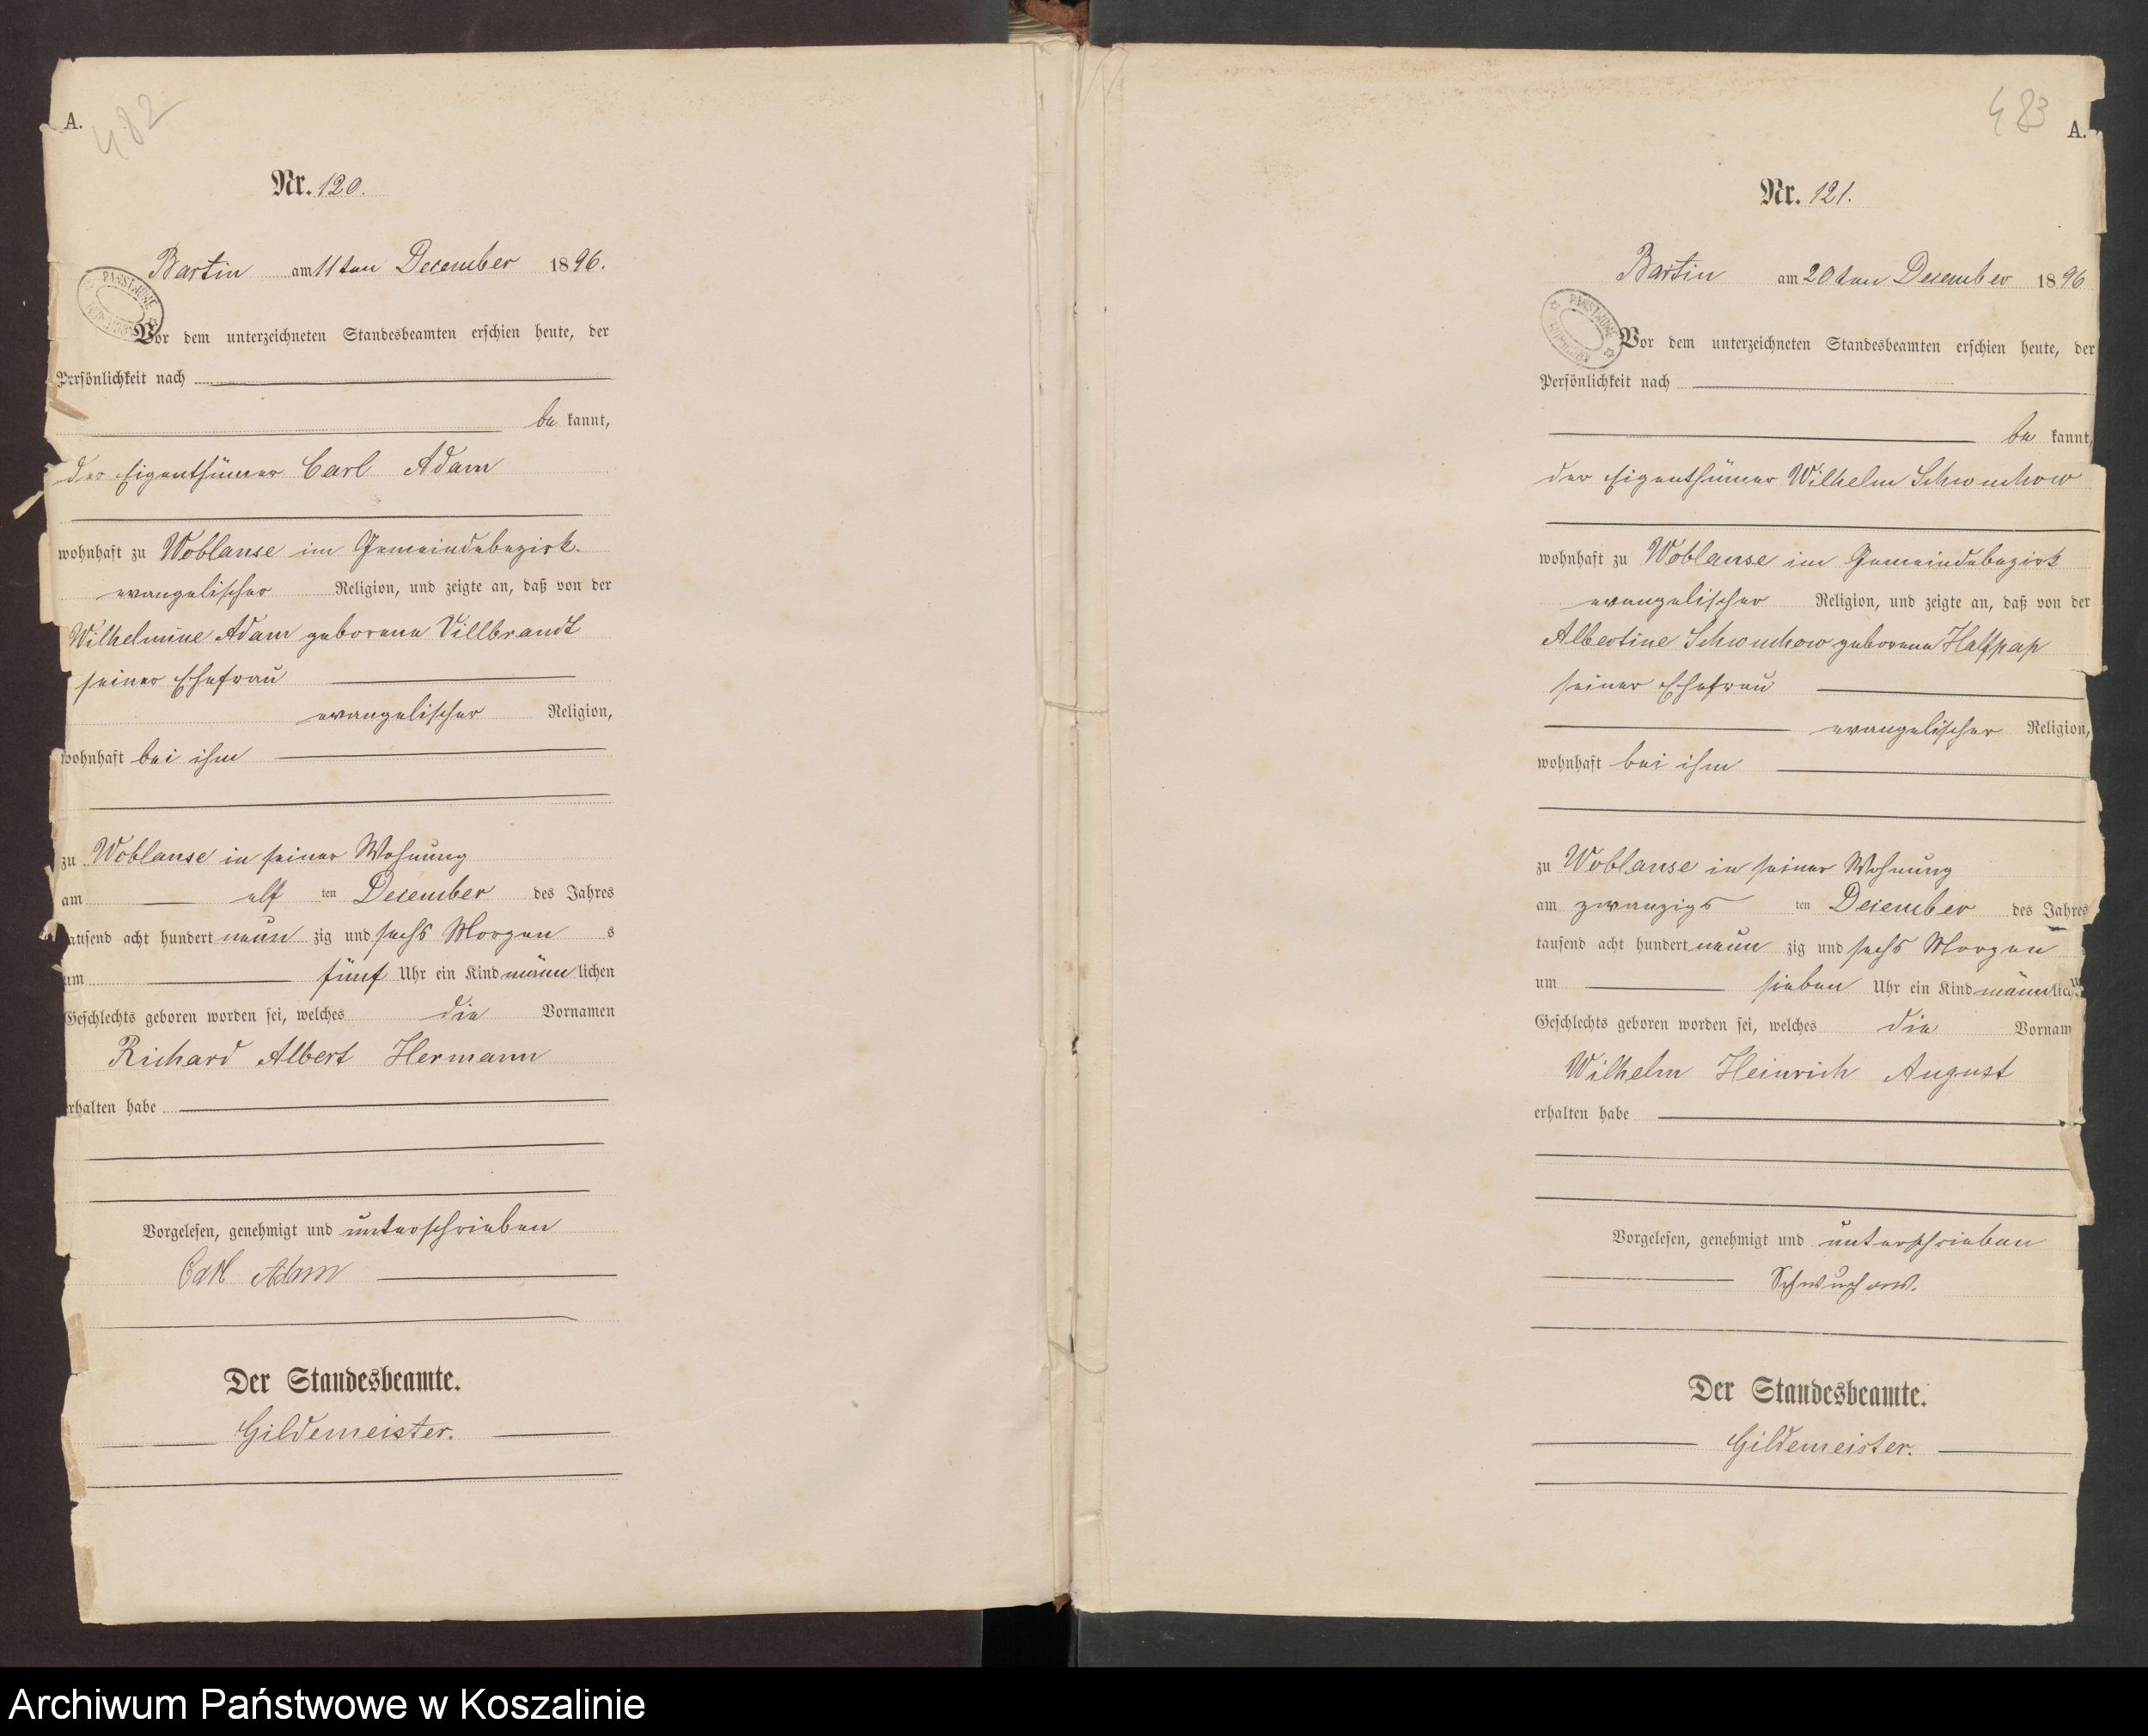 A.
482
Nr. 120.
Bartin am 11ten December 1896.
Vor dem unterzeichneten Standesbeamten erschien heute, der
Persönlichkeit nach
be kannt,
der Eigenthümer Carl Adam
wohnhaft zu Woblanse im Gemeindebezirk.
evangelischer Religion, und zeigte an, daß von der
Wilhelmine Adam geborene Villbrandt
seiner Ehefrau
evangelischer Religion,
wohnhaft bei ihm
zu Woblanse in seiner Wohnung
am elf ten December des Jahres
tausend acht hundert neun zig und sechs Morgen s
um fünf Uhr ein Kind männ lichen
Geschlechts geboren worden sei, welches die Vornamen
Richard Albert Hermann
erhalten habe
Vorgelesen, genehmigt und unterschrieben
Carl Adam
Der Standesbeamte.
Gildemeister.
483
A.
Nr. 121.
Bartin am 20ten December 1896
Vor dem unterzeichneten Standesbeamten erschien heute, der
Persönlichkeit nach
be kannt,
der Eigenthümer Wilhelm Schwuchow
wohnhaft zu Woblanse im Gemeindebezirk
evangelischer Religion, und zeigte an, daß von der
Albertine Schwuchow geborene Halfpap
seiner Ehefrau
evangelischer Religion,
wohnhaft bei ihm
zu Woblanse in seiner Wohnung
am zwanzigs ten December des Jahres
tausend acht hundert neun zig und sechs Morgen
um sieben Uhr ein Kind männ lich
Geschlechts geboren worden sei, welches die Vornam
Wilhelm Heinrich August
erhalten habe
Vorgelesen, genehmigt und unterschrieben
Schwuchow.
Der Standesbeamte.
Gildemeister.
Archiwum Państwowe w Koszalinie